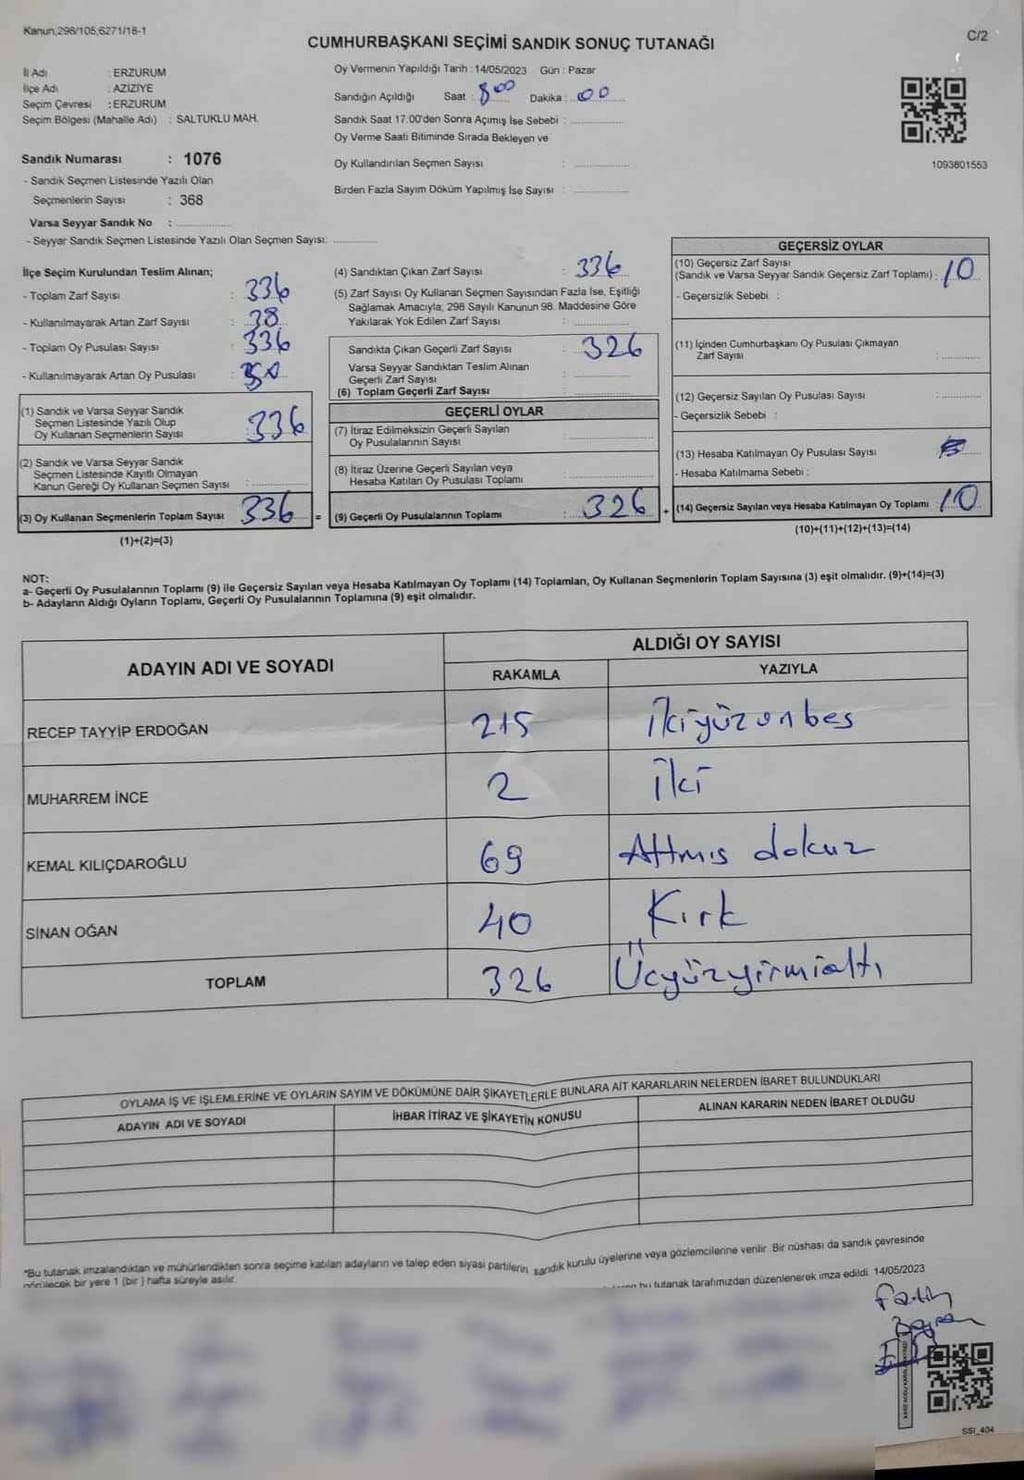 Kanun,298/105,6271/18-1
C/2
CUMHURBAŞKANI SEÇİMİ SANDIK SONUÇ TUTANAĞI
İl Adı : ERZURUM
İlçe Adı : AZİZİYE
Seçim Çevresi : ERZURUM
Seçim Bölgesi (Mahalle Adı) : SALTUKLU MAH.
Sandık Numarası : 1076
- Sandık Seçmen Listesinde Yazılı Olan
Seçmenlerin Sayısı : 368
Varsa Seyyar Sandık No :
- Seyyar Sandık Seçmen Listesinde Yazılı Olan Seçmen Sayısı:
Oy Vermenin Yapıldığı Tarih : 14/05/2023 Gün : Pazar
Sandığın Açıldığı Saat : 8 00 Dakika : 00
Sandık Saat 17:00'den Sonra Açılmış İse Sebebi :
Oy Verme Saati Bitiminde Sırada Bekleyen ve
Oy Kullandırılan Seçmen Sayısı :
Birden Fazla Sayım Döküm Yapılmış İse Sayısı :
1093801553
İlçe Seçim Kurulundan Teslim Alınan;
- Toplam Zarf Sayısı : 336
- Kullanılmayarak Artan Zarf Sayısı : 38
- Toplam Oy Pusulası Sayısı : 336
- Kullanılmayarak Artan Oy Pusulası :
(1) Sandık ve Varsa Seyyar Sandık
Seçmen Listesinde Yazılı Olup
Oy Kullanan Seçmenlerin Sayısı 336
(2) Sandık ve Varsa Seyyar Sandık
Seçmen Listesinde Kayıtlı Olmayan
Kanun Gereği Oy Kullanan Seçmen Sayısı :
(3) Oy Kullanan Seçmenlerin Toplam Sayısı 336 =
(1)+(2)=(3)
(4) Sandıktan Çıkan Zarf Sayısı : 336
(5) Zarf Sayısı Oy Kullanan Seçmen Sayısından Fazla İse, Eşitliği
Sağlamak Amacıyla; 298 Sayılı Kanunun 98. Maddesine Göre
Yakılarak Yok Edilen Zarf Sayısı :
Sandıkta Çıkan Geçerli Zarf Sayısı : 326
Varsa Seyyar Sandıktan Teslim Alınan
Geçerli Zarf Sayısı :
(6) Toplam Geçerli Zarf Sayısı :
GEÇERLİ OYLAR
(7) İtiraz Edilmeksizin Geçerli Sayılan
Oy Pusulalarının Sayısı :
(8) İtiraz Üzerine Geçerli Sayılan veya
Hesaba Katılan Oy Pusulası Toplamı :
(9) Geçerli Oy Pusulalarının Toplamı : 326 +
GEÇERSİZ OYLAR
(10) Geçersiz Zarf Sayısı
(Sandık ve Varsa Seyyar Sandık Geçersiz Zarf Toplamı) : 10
- Geçersizlik Sebebi :
(11) İçinden Cumhurbaşkanı Oy Pusulası Çıkmayan
Zarf Sayısı :
(12) Geçersiz Sayılan Oy Pusulası Sayısı :
- Geçersizlik Sebebi :
(13) Hesaba Katılmayan Oy Pusulası Sayısı :
- Hesaba Katılmama Sebebi :
(14) Geçersiz Sayılan veya Hesaba Katılmayan Oy Toplamı : 10
(10)+(11)+(12)+(13)=(14)
NOT:
a- Geçerli Oy Pusulalarının Toplamı (9) ile Geçersiz Sayılan veya Hesaba Katılmayan Oy Toplamı (14) Toplamları, Oy Kullanan Seçmenlerin Toplam Sayısına (3) eşit olmalıdır. (9)+(14)=(3)
b- Adayların Aldığı Oyların Toplamı, Geçerli Oy Pusulalarının Toplamına (9) eşit olmalıdır.
ADAYIN ADI VE SOYADI
ALDIĞI OY SAYISI
RAKAMLA YAZIYLA
RECEP TAYYİP ERDOĞAN 215 İkiyüzonbeş
MUHARREM İNCE 2 İki
KEMAL KILIÇDAROĞLU 69 Altmıs dokuz
SİNAN OĞAN 40 Kırk
TOPLAM 326 Üçyüzyirmialtı
OYLAMA İŞ VE İŞLEMLERİNE VE OYLARIN SAYIM VE DÖKÜMÜNE DAİR ŞİKAYETLERLE BUNLARA AİT KARARLARIN NELERDEN İBARET BULUNDUKLARI
ADAYIN ADI VE SOYADI İHBAR İTİRAZ VE ŞİKAYETİN KONUSU ALINAN KARARIN NEDEN İBARET OLDUĞU
*Bu tutanak imzalandıktan ve mühürlendikten sonra seçime katılan adayların ve talep eden siyasi partilerin, sandık kurulu üyelerine veya gözlemcilerine verilir. Bir nüshası da sandık çevresinde
görülecek bir yere 1 (bir) hafta süreyle asılır.
bu tutanak tarafımızdan düzenlenerek imza edildi. 14/05/2023
Fatih
SSİ_404